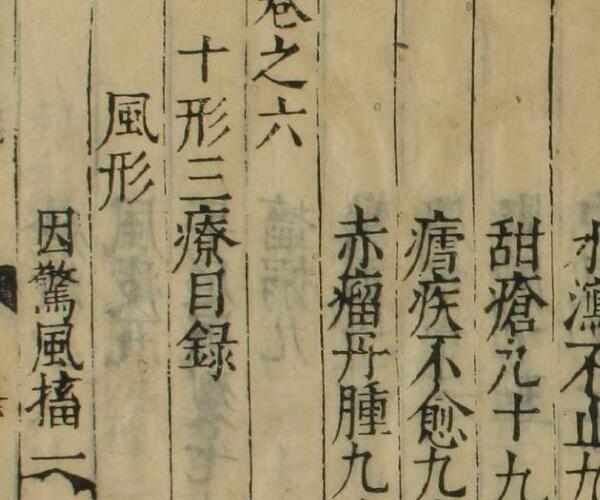 不止九
甜瘡九十九
瘧疾不愈九
赤瘤丹腫九
卷之六
十形三療目錄
風形
因驚風搐一